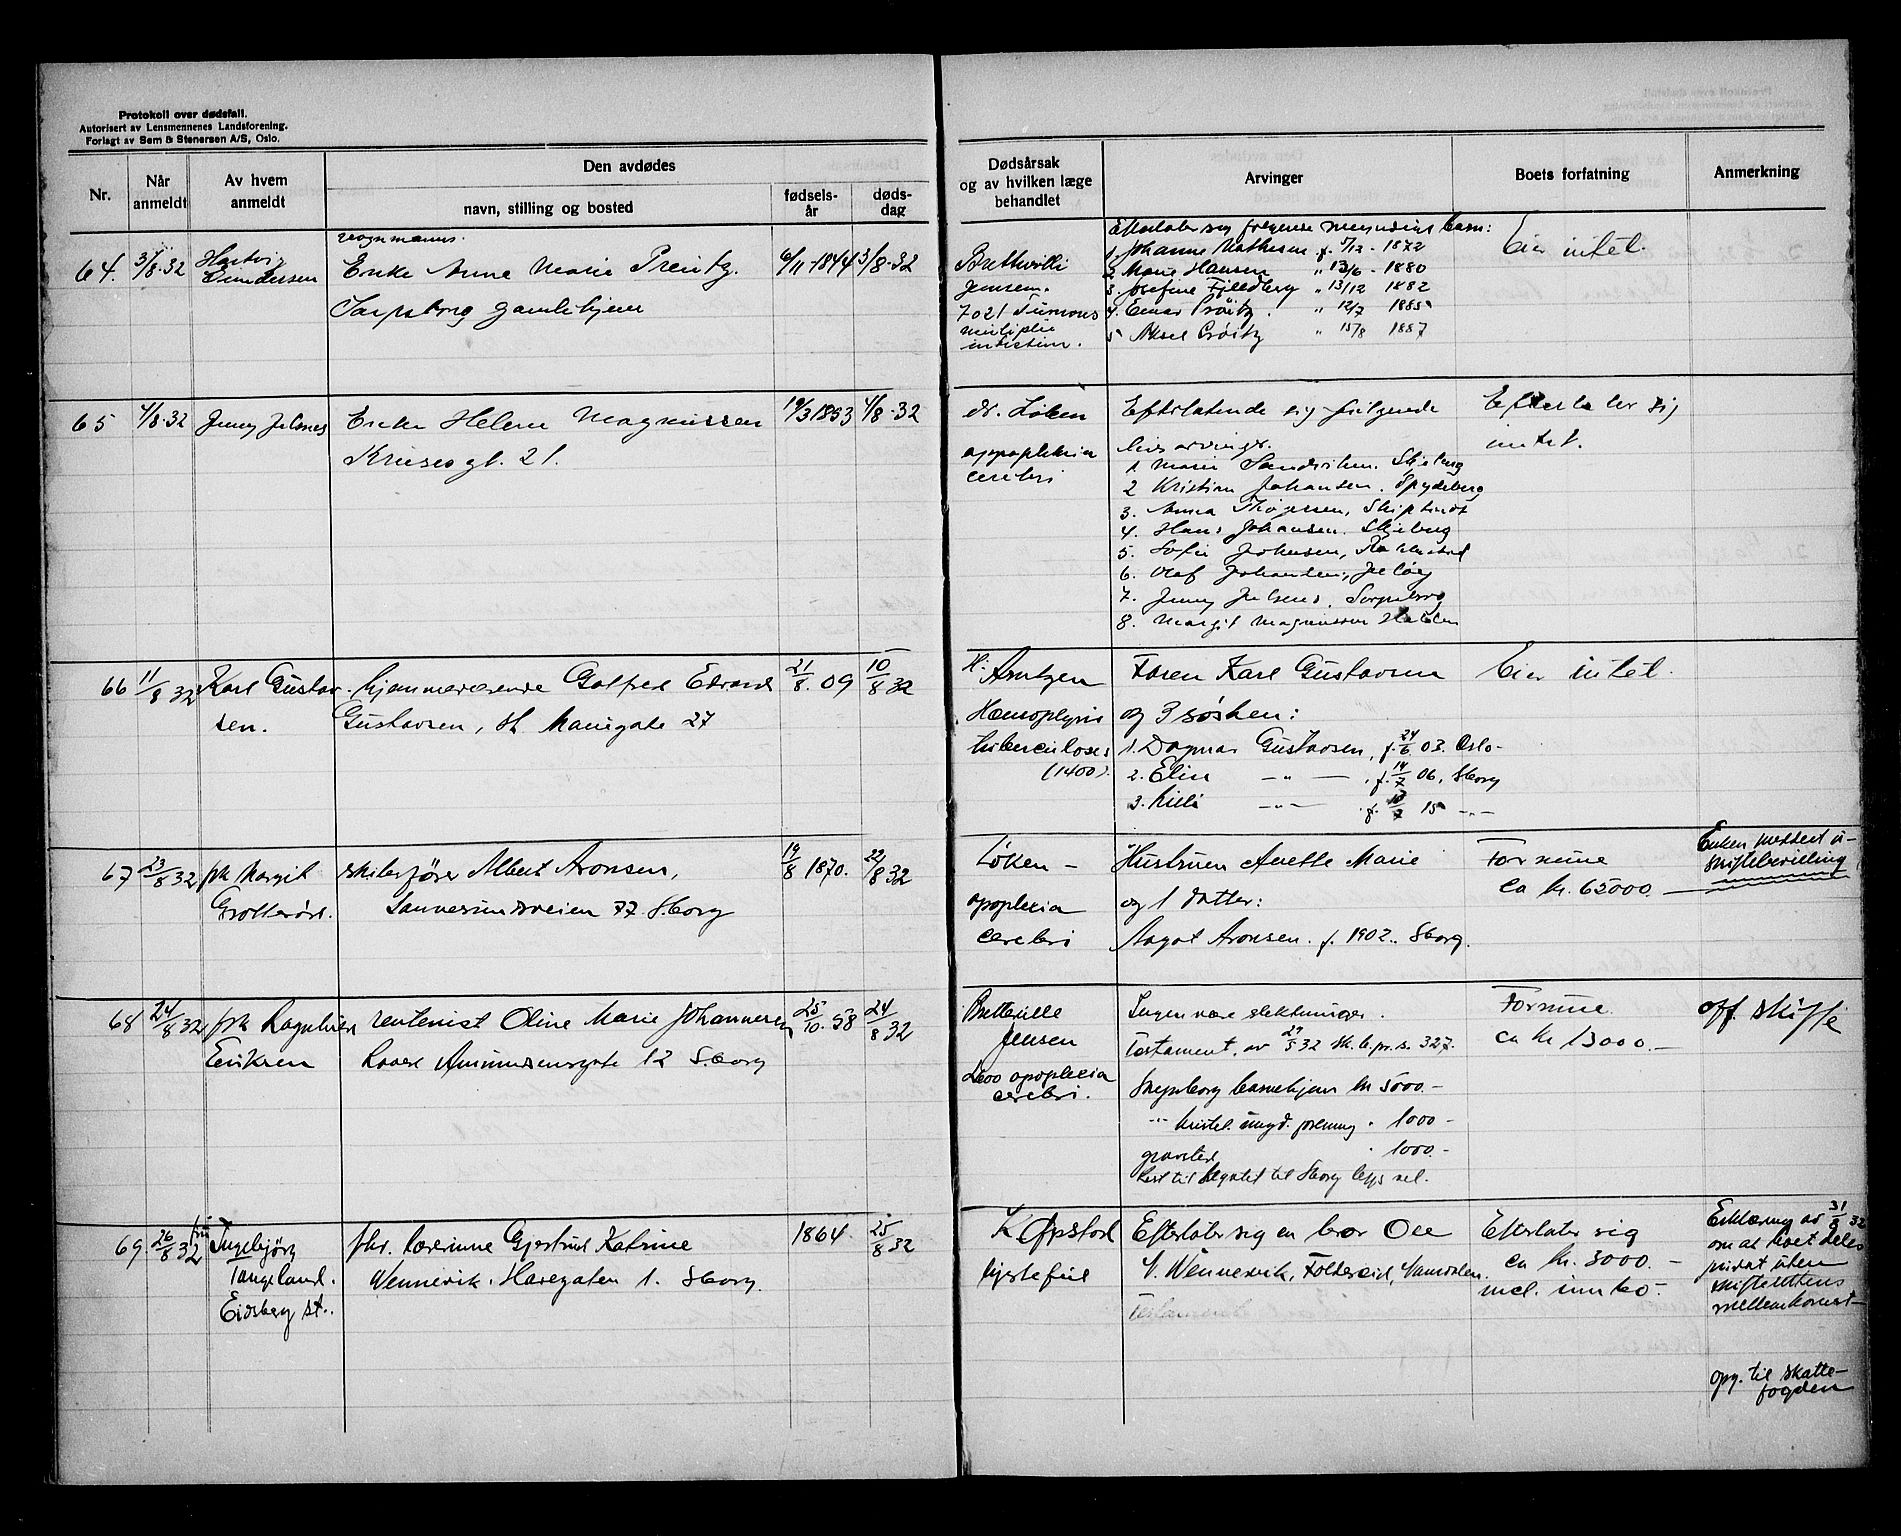 Protokoll over dødsfall.
Autorisert av Lensmennenes Landsforening.
Forlagt av Sem & Stenersen A/S, Oslo.
Nr.
Når anmeldt
Av hvem anmeldt
Den avdødes
navn, stilling og bosted
fødsels-år
døds-dag
Dødsårsak og av hvilken læge behandlet
Arvinger
Boets forfatning
Anmerkning
64. 3/8-32
Hartvig
Gundersen
vognmanns.
Enke Anne Marie 6/11-1844 3/8-32
Sarpsborg gamlehjem
Bretteville
Jensen.
Efterlater sig følgende myndige barn:
1. Johanne Mathesen f. 5/12-1872
2. Marie Hansen " 13/6-1880
3. Josefine Fjeldberg " 13/12 1882
4. Einar Prøitz " 12/7 1885
5 Aksel Prøitz " 15/8 1887
Eier intet.
65 4/8-32 Jenny Jelsnes
Enke Helene Magnussen 19/3 1853 4/8-32
Kruses gt. 21.
dr. Løken
apoplexia
cerebri
Efterlatende sig følgende
livsarvinger.
1. Marie Sandviken. Skjeberg
2 Kristian Johansen. Spydeberg
3. Anna Thøgersen, Skiptvedt
4. Hans Johansen. Skjeberg
5. Sofie Johansen, Rakkestad
6. Olaf Johansen, Jeløy
7. Jenny Jelsnes. Sarpsborg
8. Margit Magnussen Halden
Efterlater sig
intet.
66 11/8 32 Karl Gustav-
sen.
hjemmeværende Gotfred Edvard
Gustavsen, St. Mariegate 27
21/8. 09 10/8 32
Arntzen
Hæmoptysis
tuberculosis
(1400).
Faren Karl Gustavsen
og 3 søsken:
1. Dagmar Gustavsen, f. 24/6 03. Oslo-
2. Elin -"- , f. 14/7 06, Sborg
3. Lilli -"- f. 15 -"-
Eier intet.
67 23/8 32 frk Margit
skibsfører Albert Aronsen,
Sannesundsveien 77 Sborg
19/8 1870. 22/8 32
Løken -
apoplexia
cerebri
Hustruen Anette Marie
og 1 datter:
Aagot Aronsen. f. 1902. Sborg.
Formue
ca kr. 65000.-
Enken meddelt u-
skiftebevilling
68 24/8 32 frk Ragnhild
Eriksen
rentenist Oline Marie Johannesen
Roald Amundsensgate 12 Sborg
25/10. 58 24/8 32
Bretteville
Jensen
apoplexia
cerebri.
Ingen nære slektninger.
Testament. av 29/5 32 sk. b. pr. s. 327.
Sarpsborg barnehjem kr 5000.-
-"- kristel. ungd. forening " 1000-
gravsted " 1000.-
Rest til legatet til Sborg
Formue
ca kr 13000.-
off. skifte
69. 26/8 32 fru Ingebjørg
Tangeland.
Eidsberg st..
fhv. lærerinne Gjertrud Katrine
Wennevik. Havegaten 1. Sborg.
1864. 25/8 32
K Opstad
hjertefeil
Efterlater sig en bror Ole
Wennevik, Foldereid, Namdalen.
Testamente
Efterlater sig
ca kr. 3000.-
incl. innbo-.
Erklæring av 31/8 32
om at boet deles
privat uten
skifterettens
mellemkomst-
opg. til skatte-
fogden